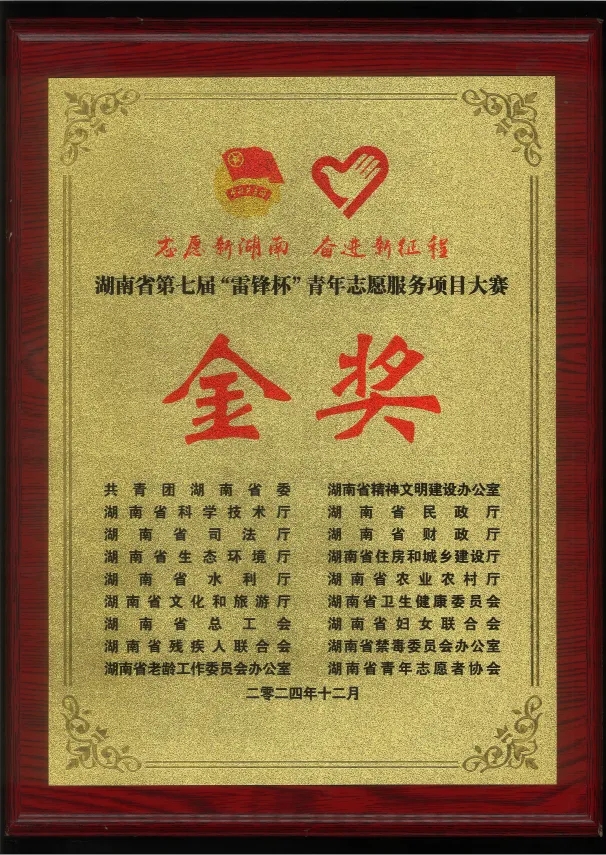 志愿新湖南 奋进新征程
湖南省第七届“雷锋杯”青年志愿服务项目大赛
金奖
共青团湖南省委 湖南省精神文明建设办公室
湖南省科学技术厅 湖南省民政厅
湖南省司法厅 湖南省财政厅
湖南省生态环境厅 湖南省住房和城乡建设厅
湖南省水利厅 湖南省农业农村厅
湖南省文化和旅游厅 湖南省卫生健康委员会
湖南省总工会 湖南省妇女联合会
湖南省残疾人联合会 湖南省禁毒委员会办公室
湖南省老龄工作委员会办公室 湖南省青年志愿者协会
二零二四年十二月